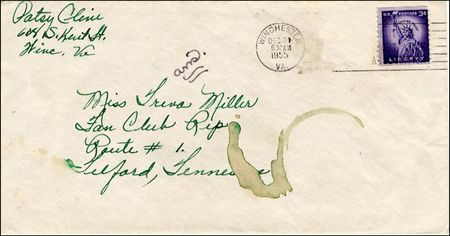 Patsy Cline
608 S. Kent St.
Winc. Va
ans.
WINCHESTER
DEC 31
1955
VA.
U.S. POSTAGE 3¢
LIBERTY
Miss Treva Miller
Fan Club Rep.
Route # 1.
Telford, Tennessee